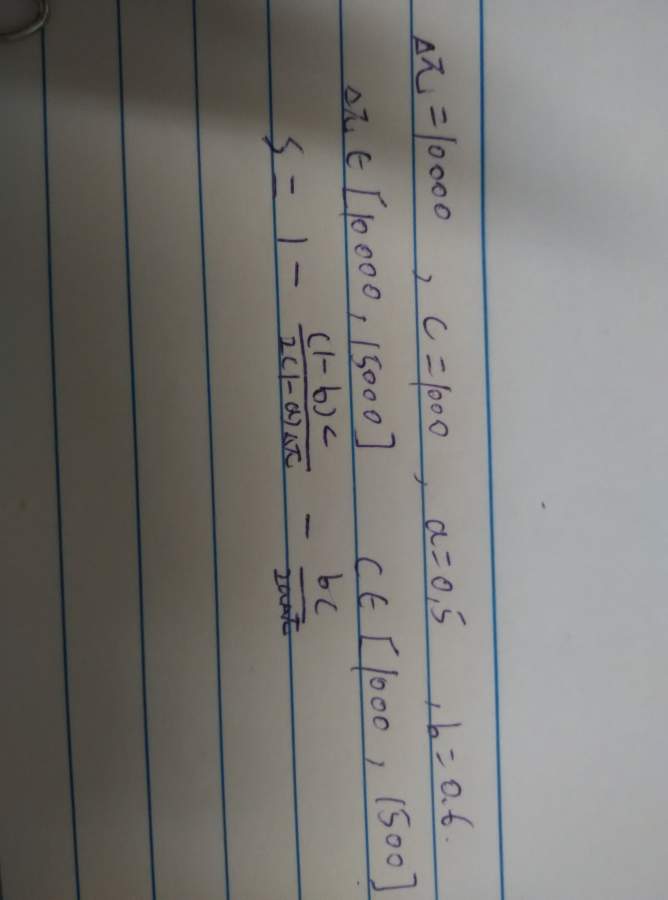 Δπ=10000 , C=1000 , a=0.5 , b=0.6.
Δπ ∈ [10000, 15000] C ∈ [1000, 1500]
S = 1 - (1-b)C/2(1-a)Δπ - bC/2aΔπ